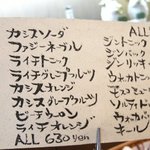 カシスソーダ
ファジーネーブル
ライチトニック
ライチグレープフルーツ
カシスオレンジ
カシスグレープフルーツ
ピーチウーロン
ライチオレンジ
ALL 630 yen
ALL
ジントニック
ジンバック
ジンリッキー
ウォッカトニック
モスコ
ソルティド
ウォッカバ
キール